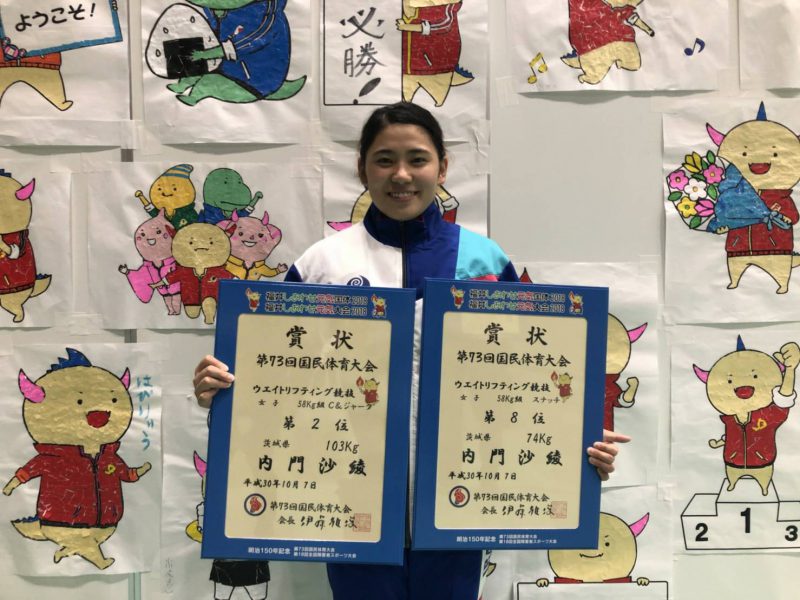 ようこそ!
必勝
はぴりゅう
福井しあわせ元気国体2018
福井しあわせ元気大会2018
賞状
第73回国民体育大会
ウエイトリフティング競技
女子 58Kg級 C&ジャーク
第2位
茨城県 103Kg
内門沙綾
平成30年10月7日
第73回国民体育大会
会長 伊藤雅俊
明治150年記念 第73回国民体育大会
第18回全国障害者スポーツ大会
福井しあわせ元気国体2018
福井しあわせ元気大会2018
賞状
第73回国民体育大会
ウエイトリフティング競技
女子 58Kg級 スナッチ
第8位
茨城県 74Kg
内門沙綾
平成30年10月7日
第73回国民体育大会
会長 伊藤雅俊
明治150年記念 第73回国民体育大会
第18回全国障害者スポーツ大会
2 1 3